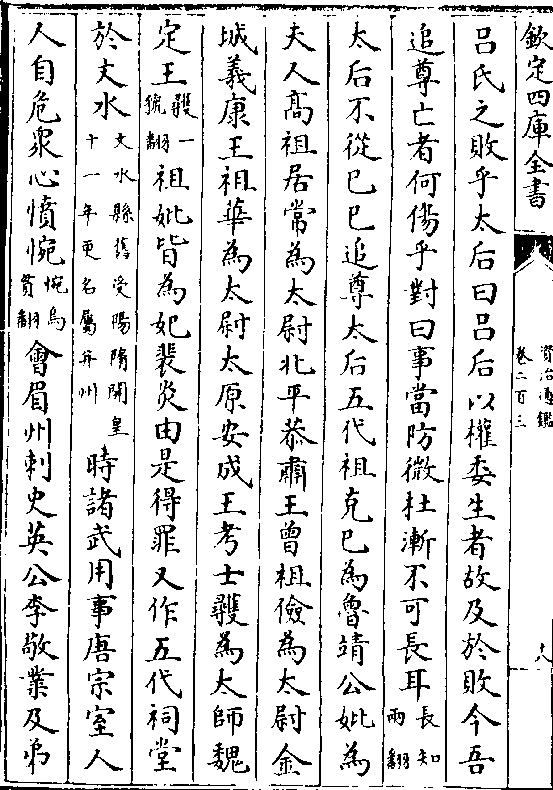 欽定四庫全書
資治通鑑
卷二百三
十八
呂氏之敗乎太后曰呂后以權委生者故及於敗今吾
追尊亡者何傷乎對曰事當防微杜漸不可長耳長知兩翻
太后不從己巳追尊太后五代祖克己為魯靖公妣為
夫人高祖居常為太尉北平恭肅王曾祖儉為太尉金
城義康王祖華為太尉太原安成王考士彠為太師魏
定王彠一虢翻祖妣皆為妃裴炎由是得罪又作五代祠堂
於文水文水縣舊受陽隋開皇十一年更名屬并州時諸武用事唐宗室人
人自危衆心憤惋惋烏貫翻會眉州刺史英公李敬業及弟